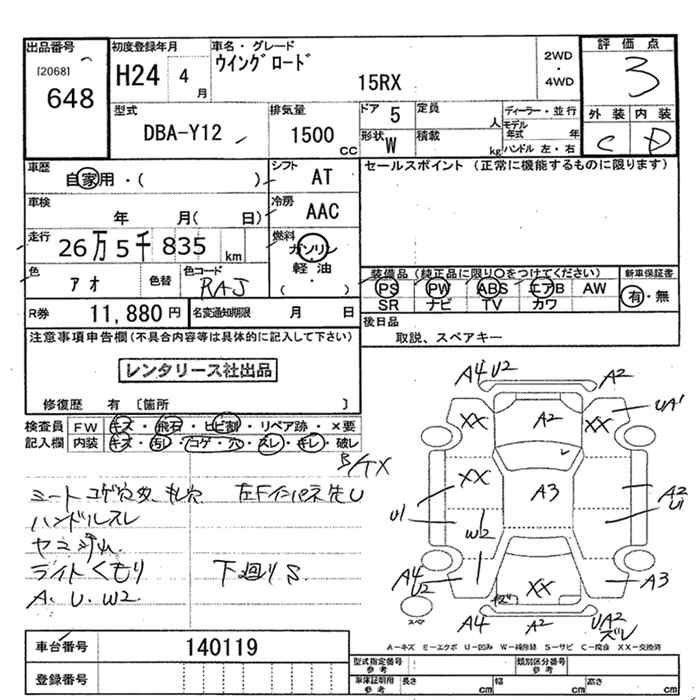 出品番号 初度登録年月 車名・グレード 評価点
[2068] 648
H24 4月
ウイングロード 15RX
2WD・4WD
3
型式 DBA-Y12
排気量 1500 CC
ドア 5
定員 人
形状 W
積載 kg
ディーラー・並行
モデル年式 年
ハンドル 左・右
外装 内装
C D
車歴 自家用・( )
シフト AT
セールスポイント (正常に機能するものに限ります)
車検 年 月( 日)
冷房 AAC
走行 26万5千835 km
燃料 ガソリン 軽油 ( )
色 アオ 色替 色コード RAJ
装備品(純正品に限り○をつけてください) 新車保証書
PS PW ABS エアB AW 有・無
SR ナビ TV カワ
R券 11,880円 名変通知期限 月 日
後日品 取説、スペアキー
注意事項申告欄(不具合内容等は具体的に記入して下さい)
レンタリース社出品
修復歴 有 〔箇所 〕
検査員 FW キズ・飛石・ヒビ割・リペア跡・×要
記入欄 内装 キズ・汚レ・コゲ・穴・スレ・キレ・破レ
ハンドルスレ
ライトくもり 下廻りS
A.U.W2
A4 U2 A2
XX A2 XX UA1
XX A3 A2
U1 W2 U1
A4 U2 XX A3
A4 A2 UA2
ズレ
スペア
A−キズ E−エクボ U−凹み W−補修跡 S−サビ C−腐食 XX−交換済
車台番号 140119
登録番号
型式指定番号 参考 類別区分番号 参考
車庫証明用 参考 長さ cm 幅 cm 高さ cm